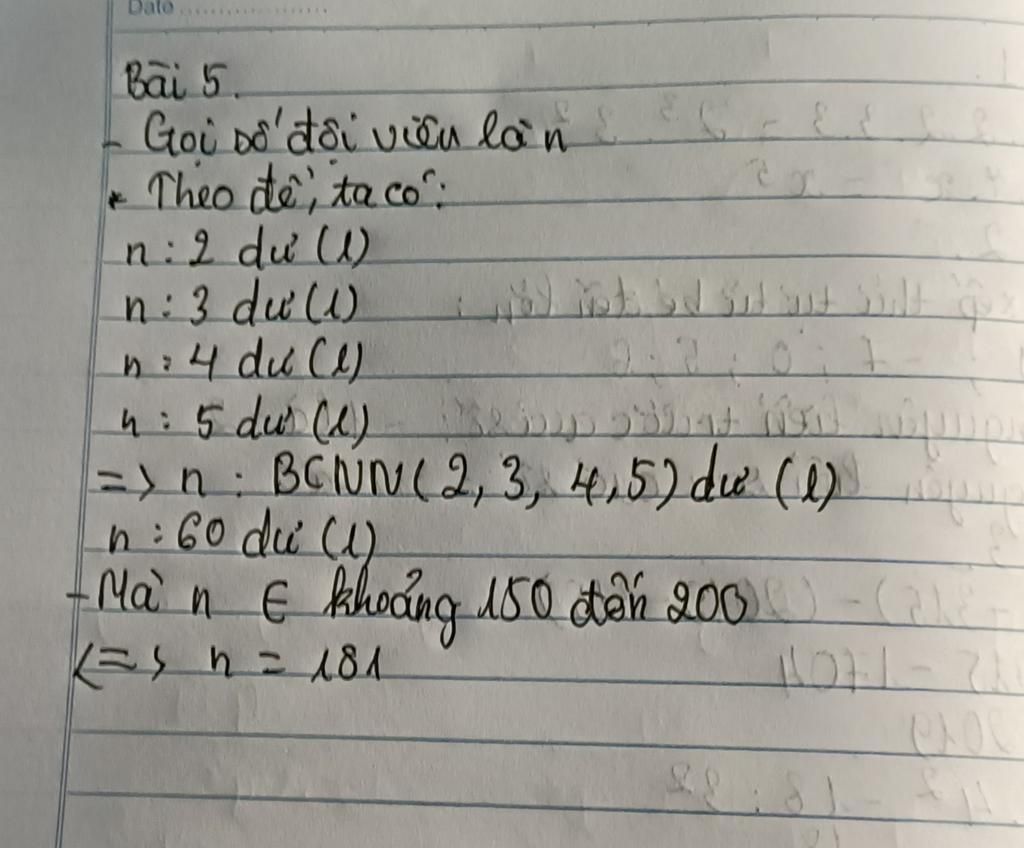 Date
Bài 5.
- Gọi số đội viên là n
* Theo đề, ta có:
n : 2 dư (1)
n : 3 dư (1)
n : 4 dư (1)
n : 5 dư (1)
=> n : BCNN(2, 3, 4, 5) dư (1)
n : 60 dư (1)
- Mà n ∈ khoảng 150 đến 200
<=> n = 181